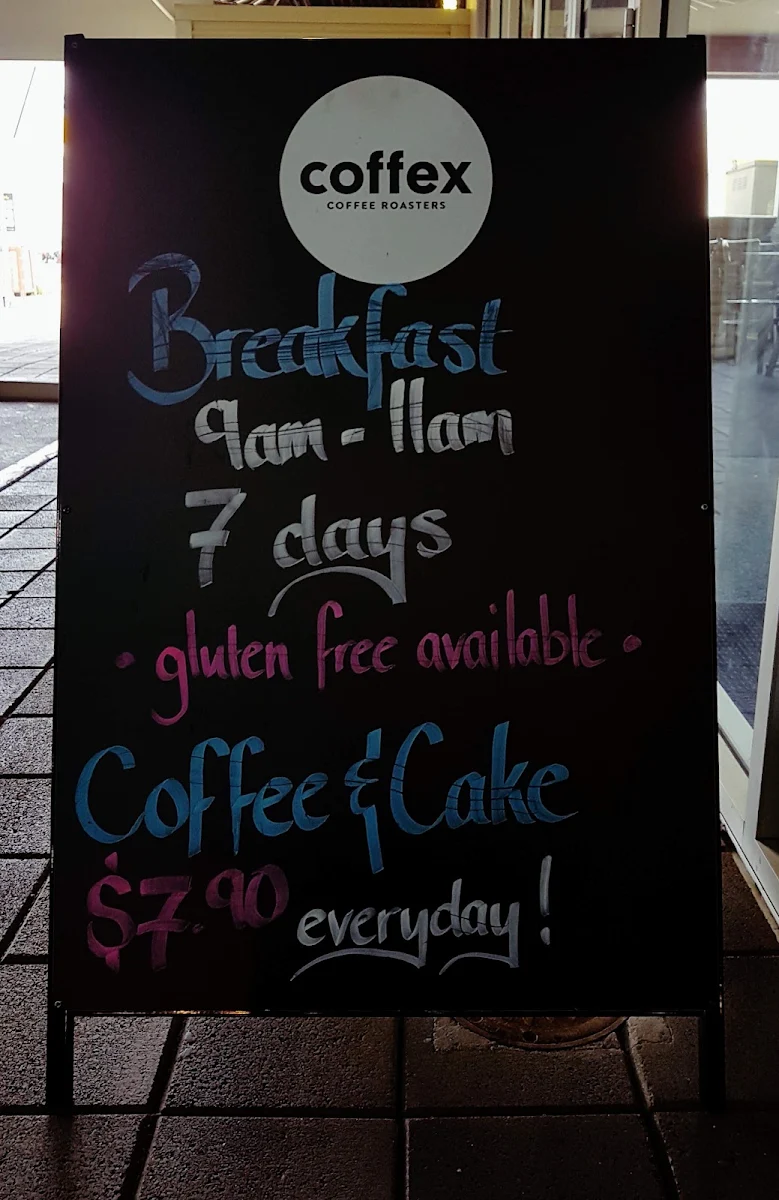 coffex
COFFEE ROASTERS
Breakfast
9am - 11am
7 days
• gluten free available •
Coffee & Cake
$7.90 everyday!